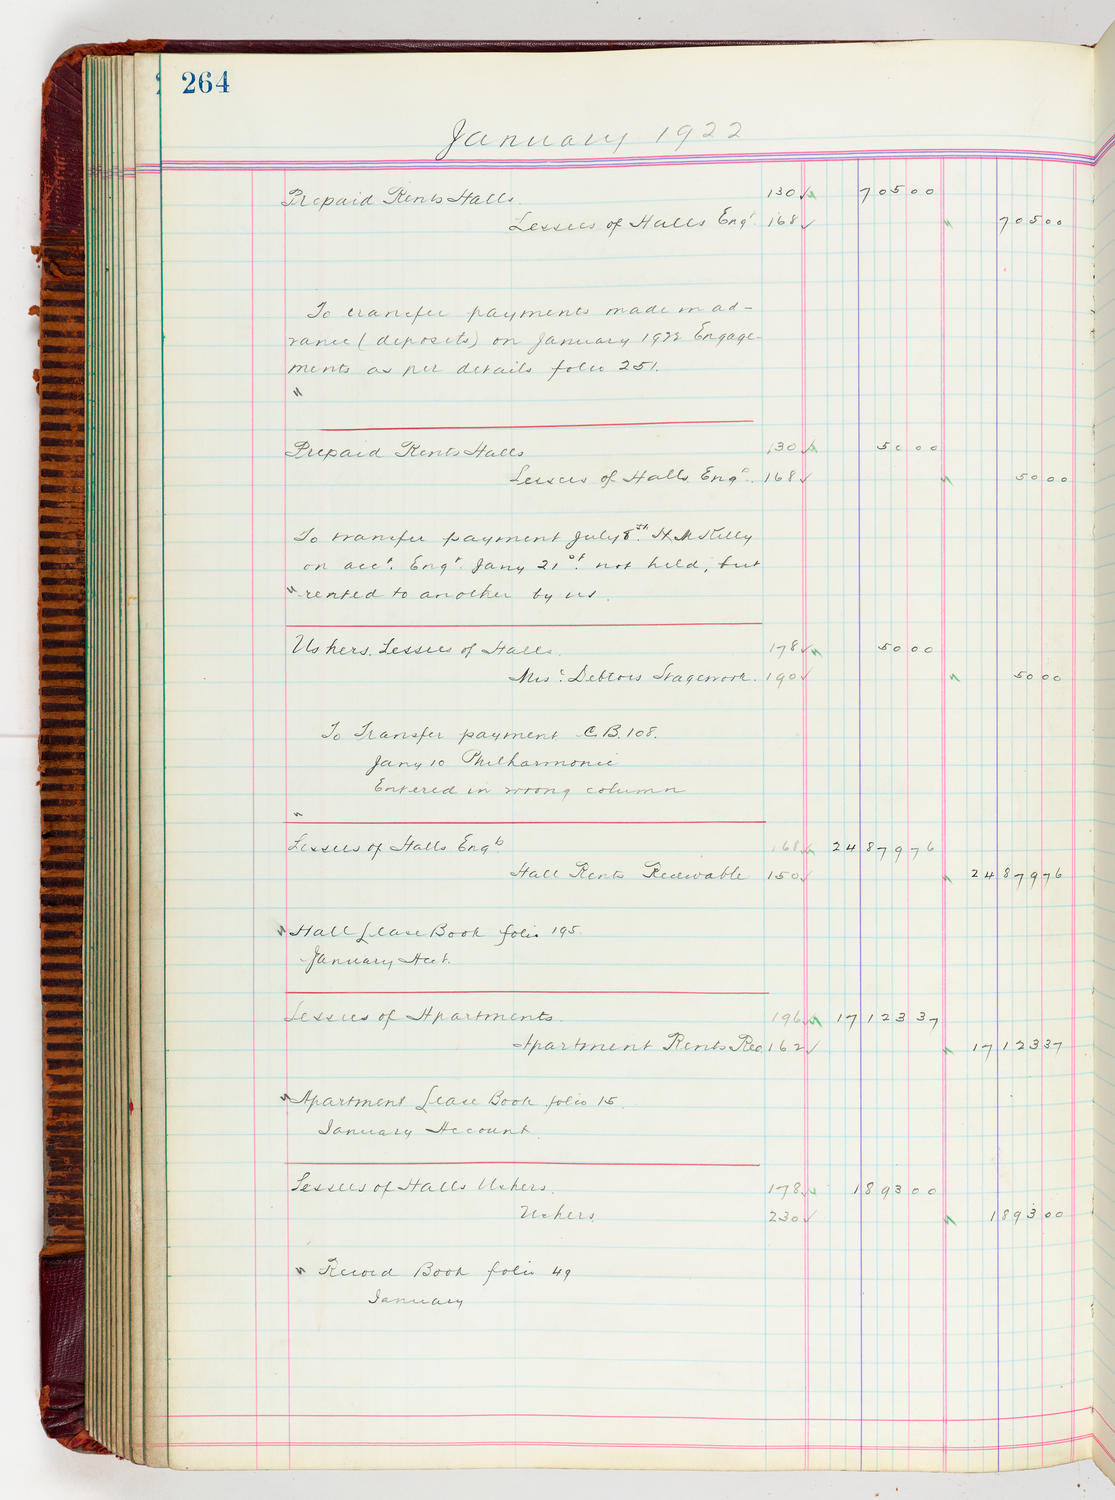 264
January 1922
Prepaid Rents Halls 130 705 00
Lessees of Halls Engt 168 705 00
To transfer payments made in ad-
vance (deposits) on January 1922 Engage-
ments as per details folio 251.
Prepaid Rents Halls 130 50 00
Lessees of Halls Engt. 168 50 00
To transfer payment July 8th. H M Kelly
on acct. Engt. Jany 21st. not held, but
rented to another by us.
Ushers. Lessees of Halls. 178 50 00
Debtors Stagework. 190 50 00
To Transfer payment C.B. 108.
Jany 10 Philharmonic
Entered in wrong column
Lessees of Halls Engts 168 24879 76
Hall Rents Receivable 150 24879 76
Hall Lease Book folio 195.
January Act.
Lessees of Apartments. 196 17123 37
Apartment Rents Rec 162 17123 37
Apartment Lease Book folio 15.
January Account
Lessees of Halls Ushers. 178 1893 00
Ushers. 230 1893 00
Record Book folio 49
January